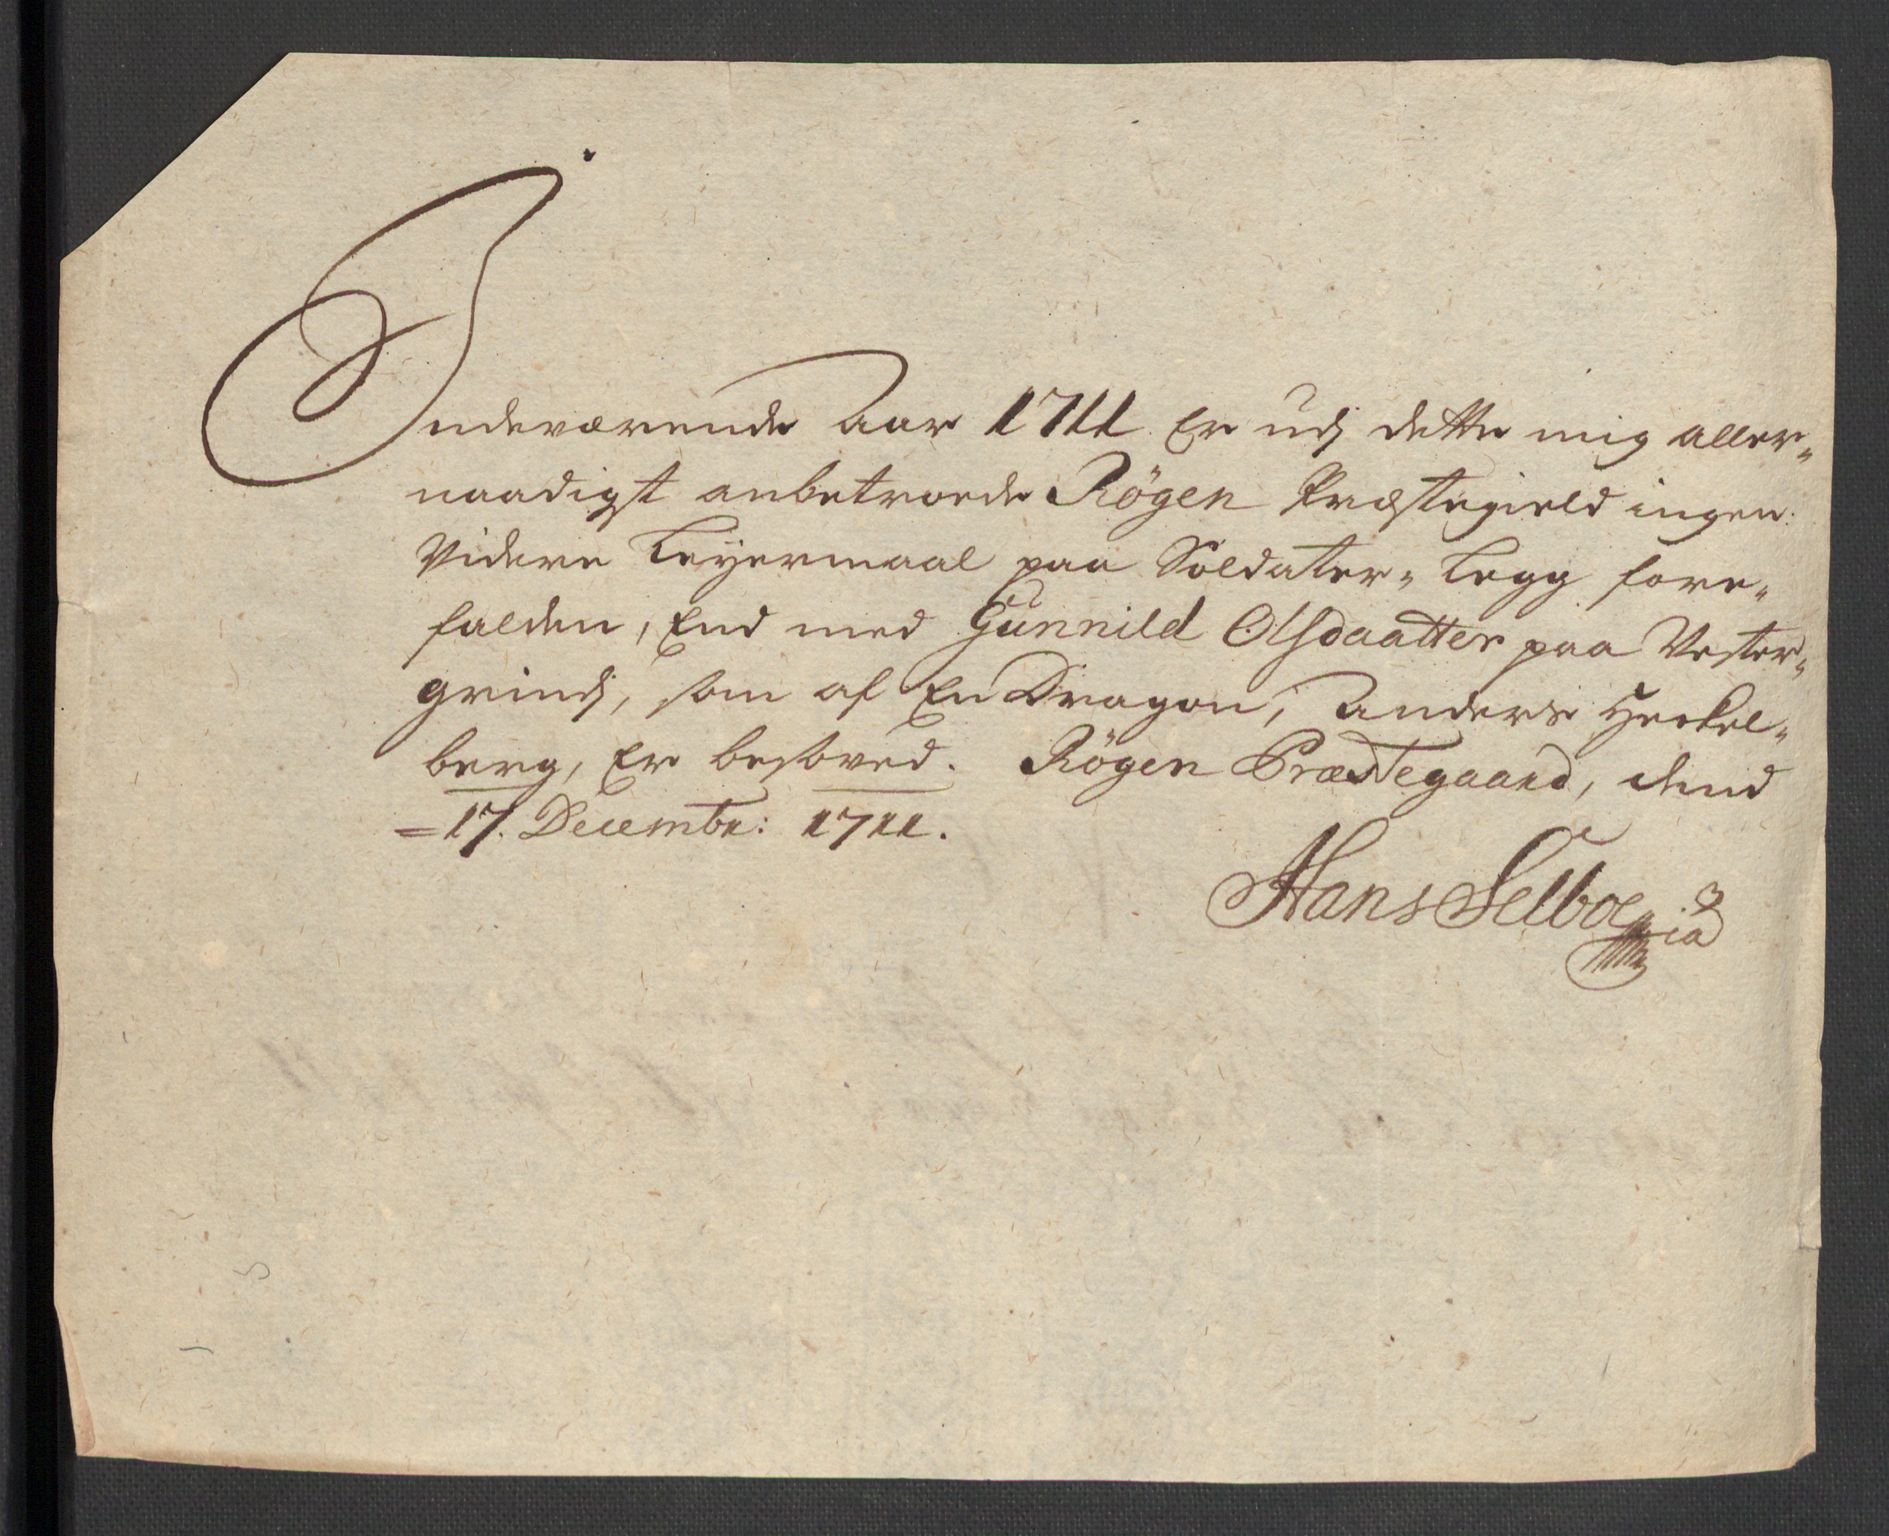 Indeværende Aar 1711 Er udj dette mig aller-
naadigst anbetroede Røgen Præstegield ingen
Videre Leyermaal paa Soldater-Legg fore-
falden, End med Gunnild Olsdaatter paa Vester-
grindj, som af En Dragon, Anders Heckel-
berg, Er besoved. Røgen Præstegaard, dend
17. Decembr: 1711.
Hans Selboe